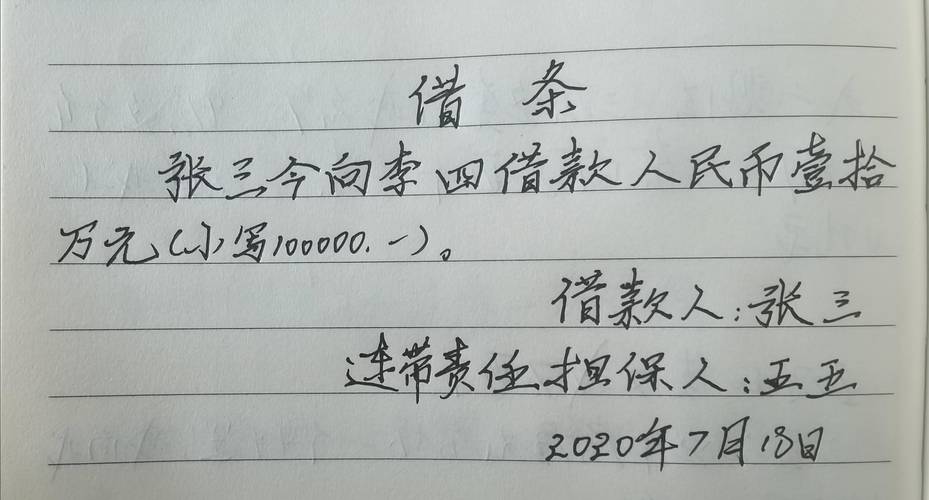 借条
张三今向李四借款人民币壹拾
万元(小写100000.-)。
借款人:张三
连带责任担保人:王五
2020年7月18日